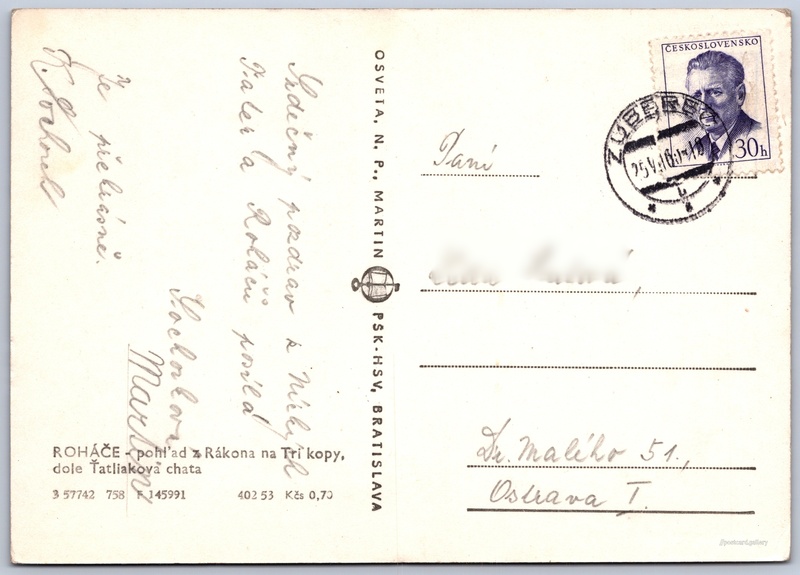 Srdečný pozdrav z Nízkých
Tater a Roháčů posílá
Kocholová
Martin
Je překrásně.
OSVETA, N. P., MARTIN
PSK-HSV, BRATISLAVA
ROHÁČE - pohľad z Rákona na Tri kopy,
dole Ťatliaková chata
3 57742 758 F 145991 402 53 Kčs 0,70
ČESKOSLOVENSKO
30h
ZUBEREC
Paní
Dr. Malého 51.,
Ostrava I.